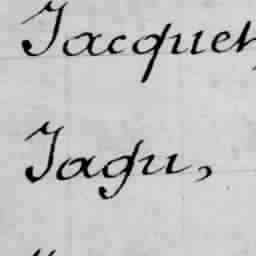 Jacquet
Jagu,
"